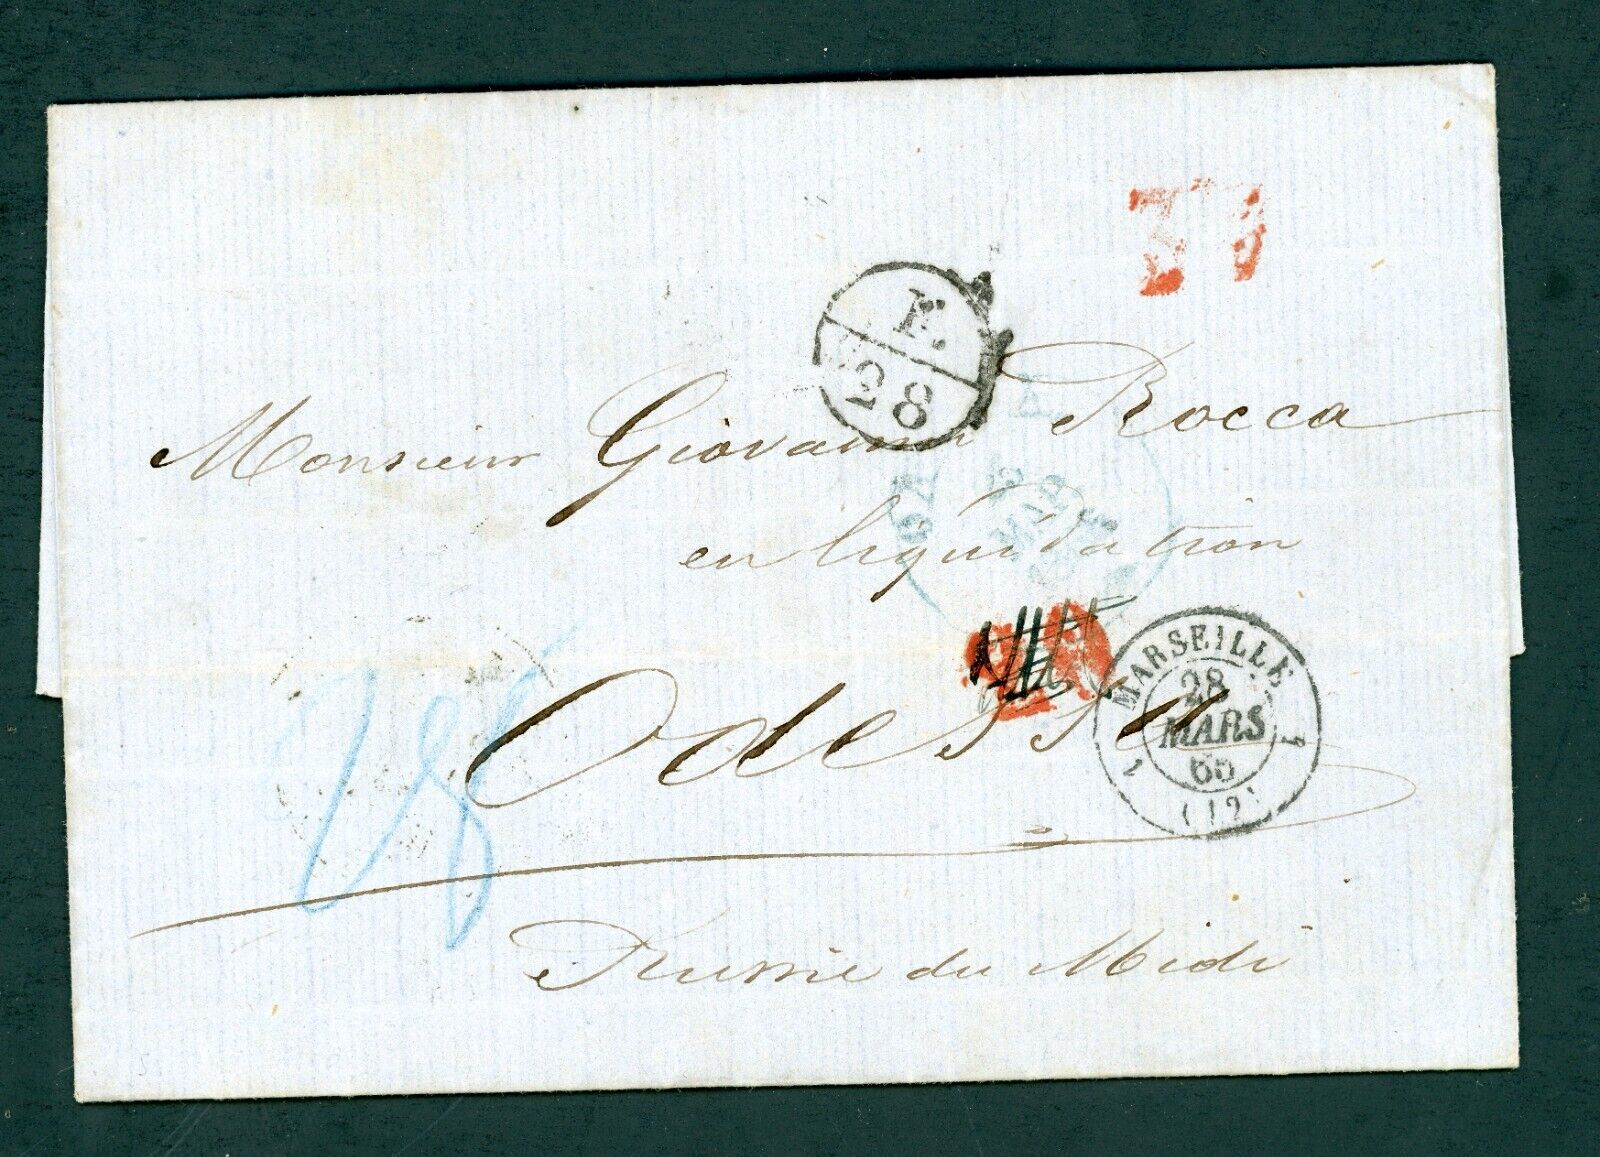 F.
28
Monsieur Giovanni Rocca
en liquidation
Odessa
MARSEILLE
28
MARS
65
(12)
Russie du Midi